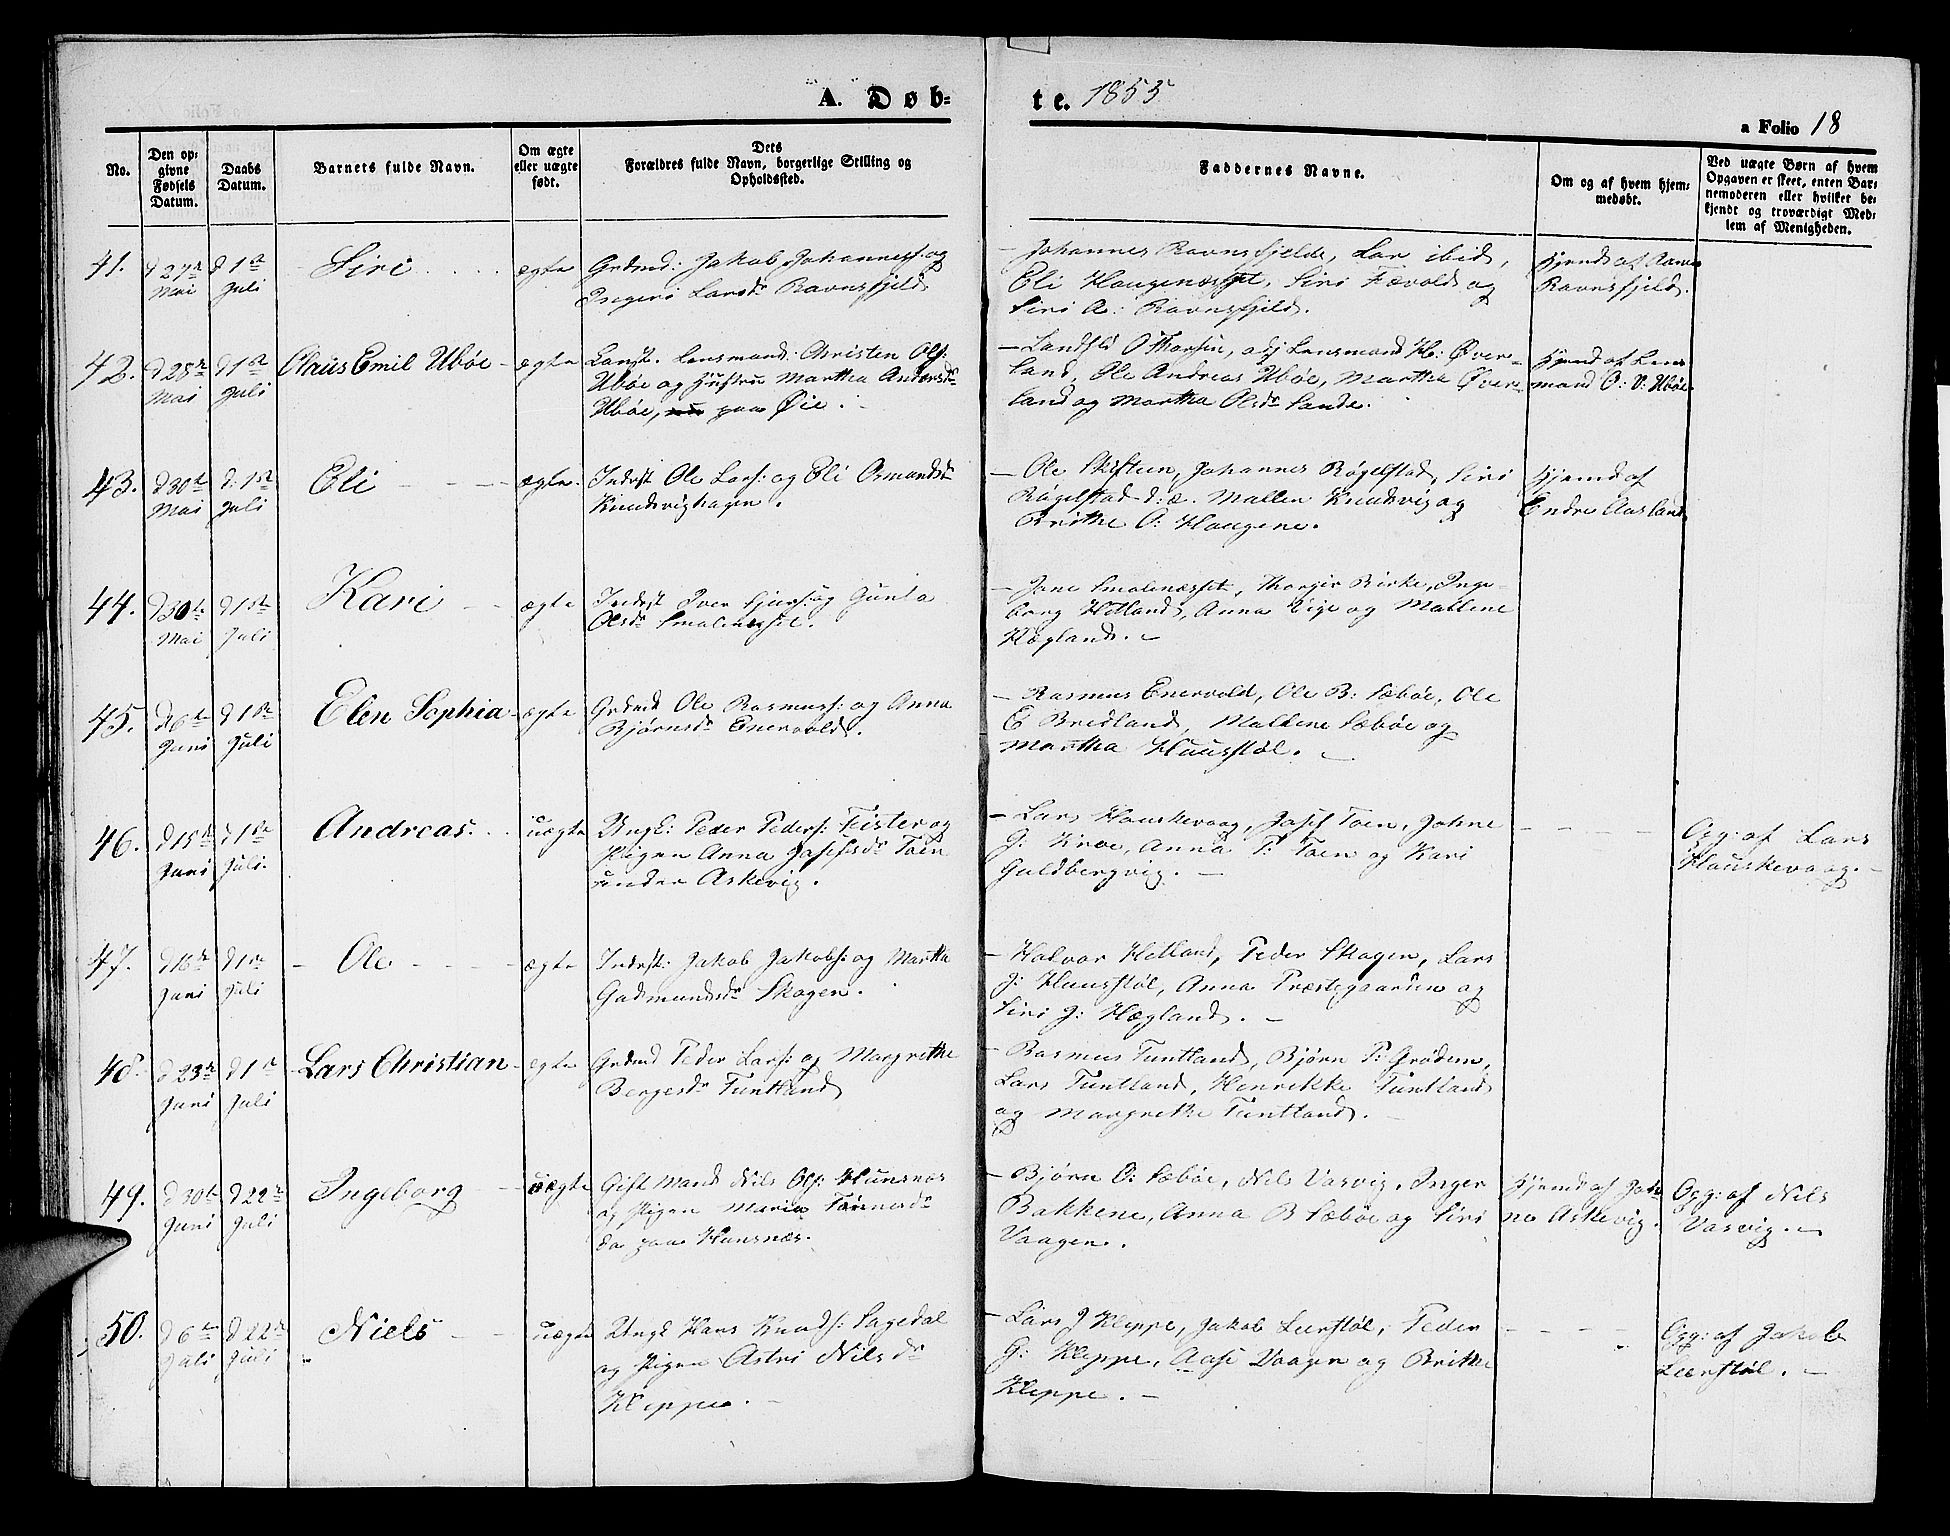 A. Døb=
te. 1855
a Folio 18
No.
Den op=
givne
Fødsels
Datum.
Daabs
Datum.
Barnets fulde Navn.
Om ægte
eller uægte
født.
Dets
Forældres fulde Navn, borgerlige Stilling og
Opholdssted.
Faddernes Navne.
Om og af hvem hjem=
medøbt.
Ved uægte Børn af hvem
Opgaven er skeet, enten Bar=
nemoderen eller hvilket be=
kjendt og troværdigt Med=
lem af Menigheden.
41.
d 27de
Mai
d 1ste
Juli
Siri
ægte
Grdmd: Jakob Johanness: og
Ingeri Larsdr Ravnsfjeld
– Johannes Ravnsfjeld, Lar ibid,
Eli Haugenæsset, Siri Fævold og
Siri A: Ravnsfjeld.
Hjemd af
Ravnsfjeld.
42.
d 28de
Mai
d 1ste
Juli
Claus Emil Ubøe
ægte
Const. Lensmand Christen Ols:
Ubøe og Hustru Martha Andersdr
Ubøe, paa Øie.
Lensmand H: Øver=
land, Ole Andreas Ubøe, Martha Øver=
land og Martha Olsdr Sande.
Hjemd af Lens
mand O: V: Ubøe
43.
d 30te
Mai
d. 1ste
Juli
Eli
ægte.
Inderst Ole Lars: og Eli Osmundsdr
Knudsvighagen.
– Ole, Johannes Røgelstad, Siri
Røgelstad d: æ. Mallen Knudsvig og
Brithe O: Haugene.
Hjemd af
Endre Aasland
44.
d 30te
Mai
d 1ste
Juli
Kari
ægte
Inderst Iver og Gunla
Olsdr Smalenesset.
– Jane Smalenæsset, Thorgir Birke, Inge=
borg Hetland, Anna Eige og Mallene
Hægland. –
45.
d 6te
Juni
d 1ste
Juli
Elen Sophia
ægte
Grdmd Ole Rasmuss: og Anna
Bjørnsdr Enervold.
– Rasmus Enervold, Ole B: Sæbøe, Ole
E Bredland, Mallene Sæbøe og
Martha Hausstøl. –
46.
d 15de
Juni
d 1ste
Juli.
Andreas.
uægte
Ungk: Peder Peders: Feister og
Pigen Anna Josefsdr Toen
under Askevig.
– Lars Hauskevaag, Josef Toen, Johne
J: Knoe, Anna P: Toen og Kari
Guldbergvig. –
Opg: af Lars
Hauskevaag. –
47.
d 16de
Juni
d 1ste
Juli
– Ole
ægte
Inderst: Jakob Jakobs: og Martha
Gudmundsdr Skogen.
– Halvor Hetland, Peder Skogen, Lars
J: Hausstøl, Anna Præstegaarden og
Siri J: Hægland. –
48.
d 23de
Juni
d 1ste
Juli
Lars Christian
ægte
Grdmd Peder Lars: og Margrethe
Bergesdr Tuntland
– Rasmus Tuntland, Bjørn P: Grødem,
Lars Tuntland, Henrikke Tuntland
og Margrethe Tuntland. –
49.
d 30te
Juni
d 22de
Juli
Ingeborg
uægte
Gift Mand Nils Ols: Hunsnæs
og Pigen Maria Tønnesdr
da paa Hunsnæs.
– Bjørn O: Sæbøe, Nils Vasvig, Inger
Bakkene, Anna B Sæbøe og Siri
Vaagen.
Hjemd af Joh=
ne Askevig.
Opg: af Nils
Vasvig. –
50.
d 6te
Juli
d 22de
Juli
Niels
uægte
Ungk Hans Knuds: Sagedal
og Pigen Astri Nilsdr
Kleppe. –
– Lars J Kleppe, Jakob Leerstøl, Peder
G: Kleppe, Aase Vaagen og Brithe
Kleppe. –
Opg: af Jakob
Leerstøl. –